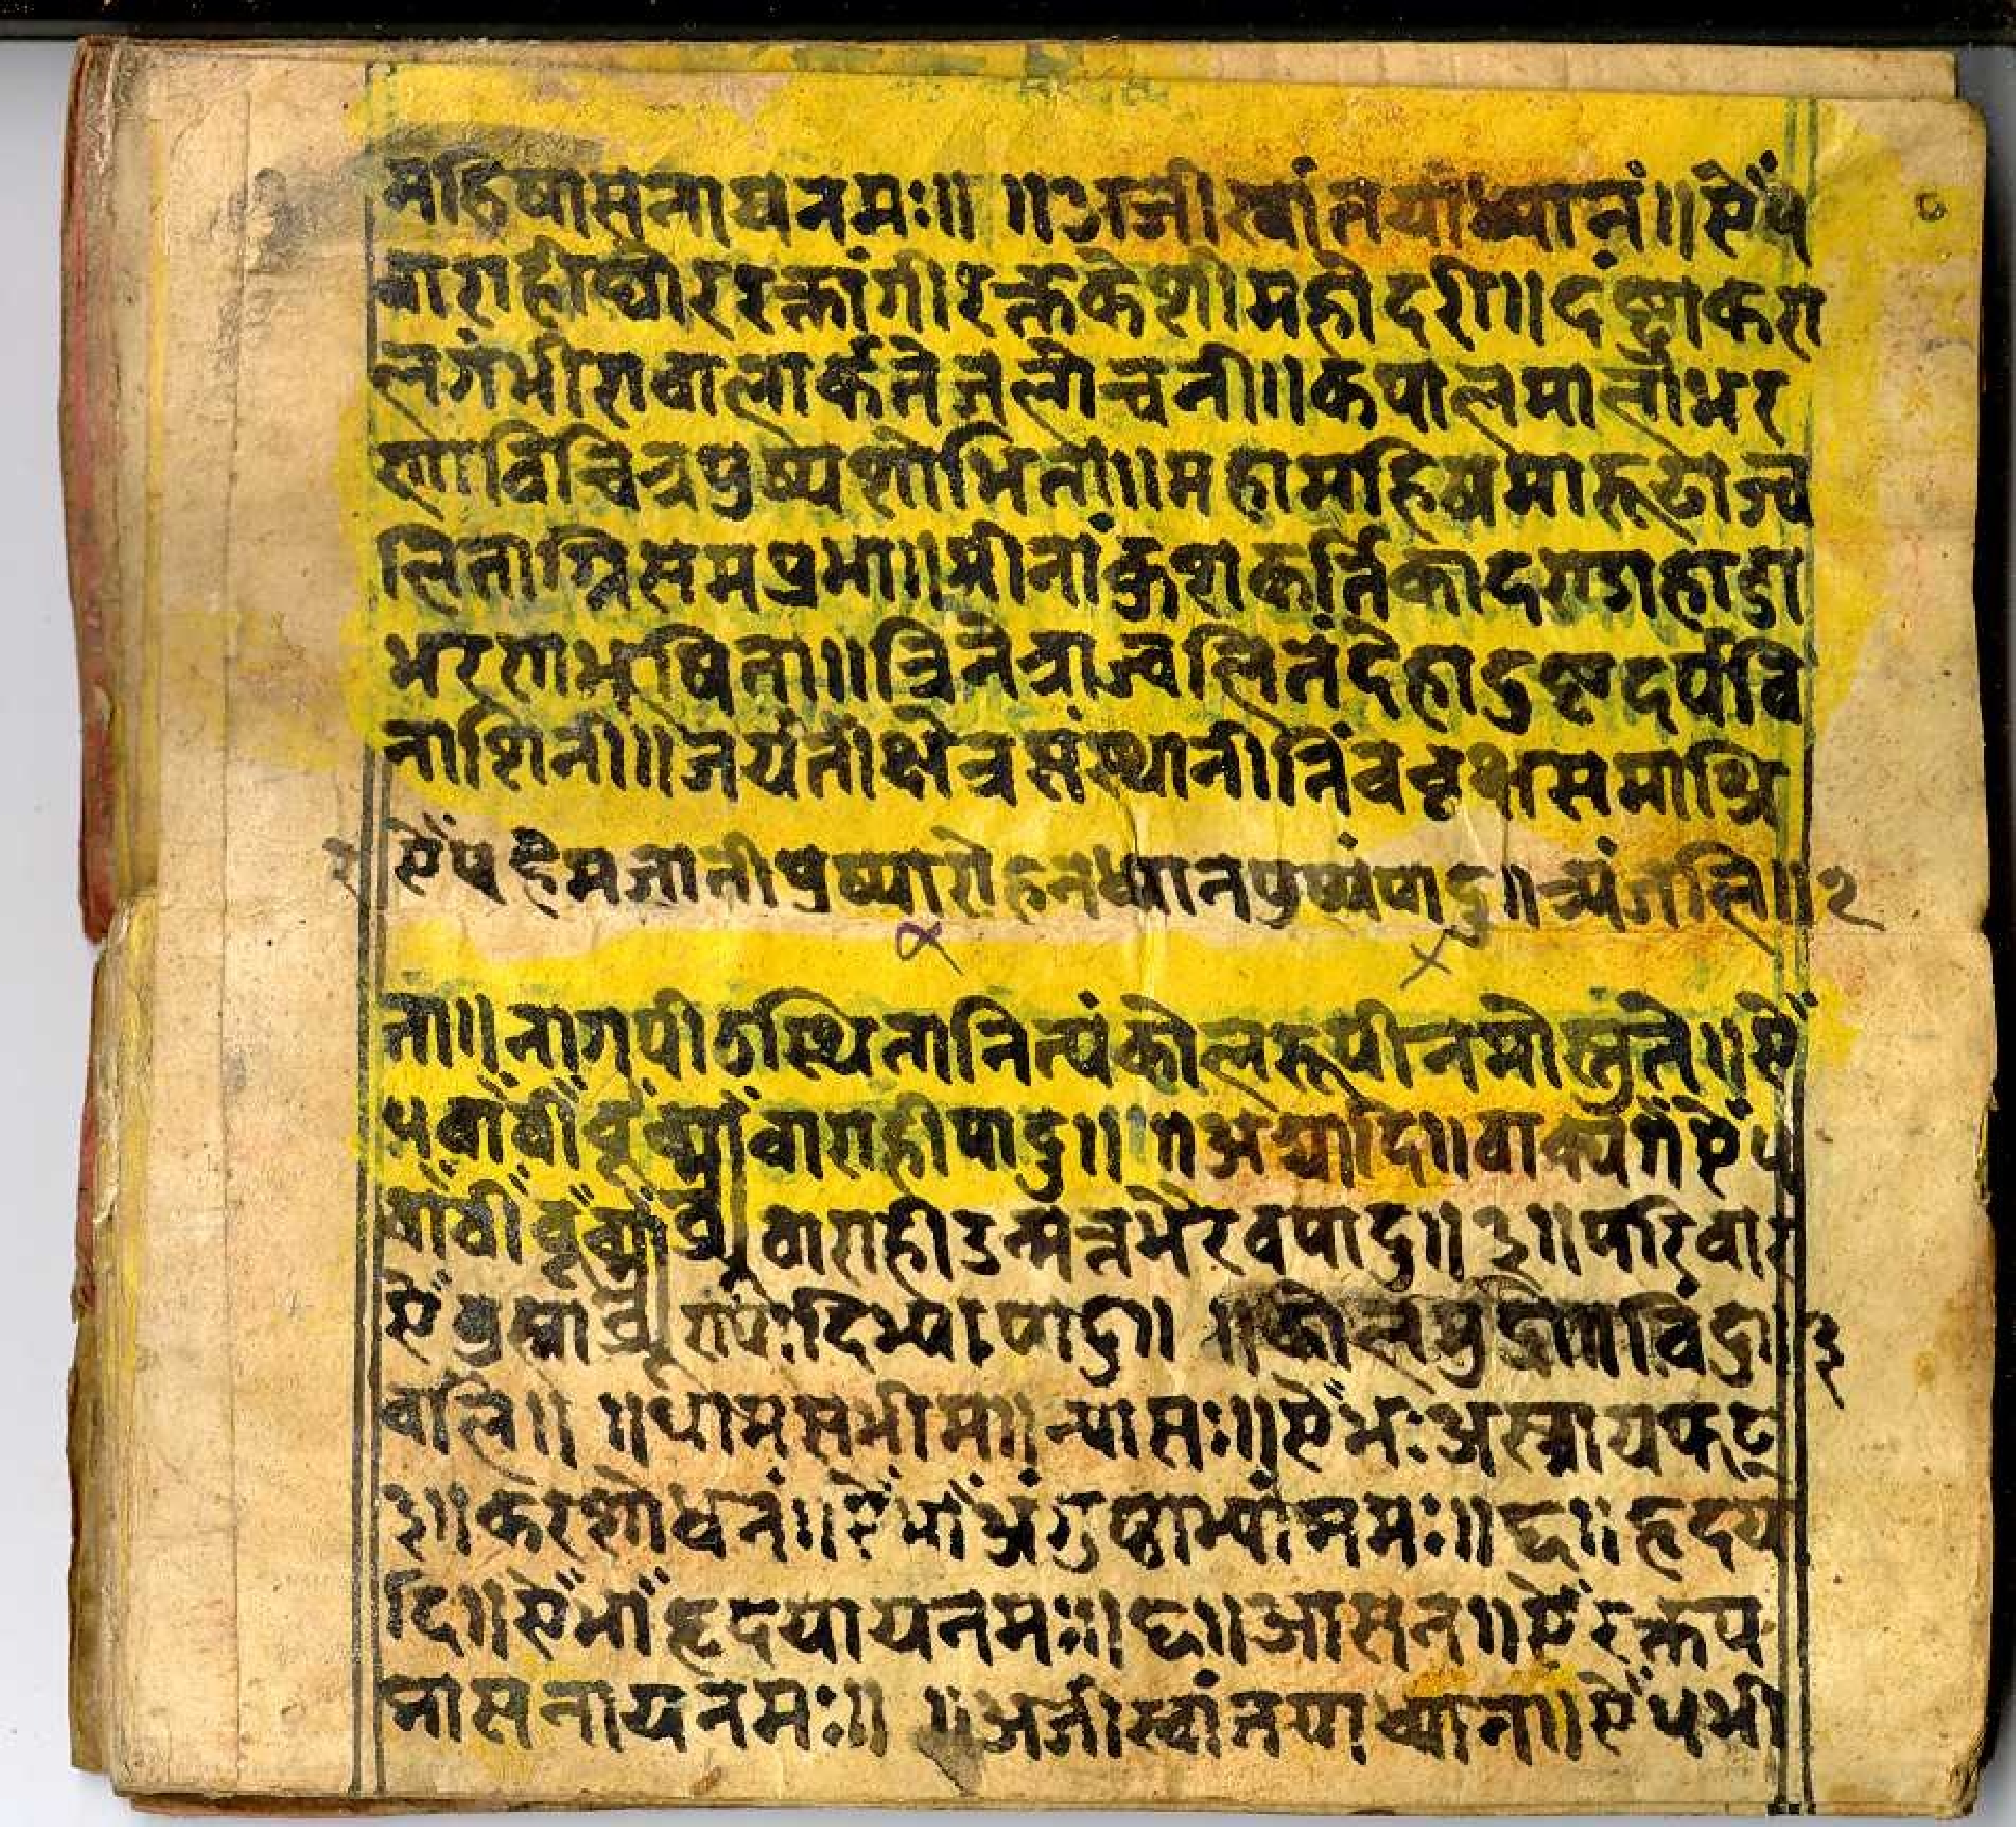 महिषासनाय नमः॥ ॥अजीस्वांतयाध्यानं॥ ऐँ५
वाराहीघोररक्तांगीरक्तकेशीमहोदरी॥दंष्ट्राकरा
लगंभीरावालार्कतेजलोचनी॥कपालमालाभर
णाविचित्रपुष्पशोभिता॥महामहिषमारूढाज्व
लिताग्निसमप्रभा॥मीनांकुशकर्तिकाद्
भरणभूषिता॥त्रिनेत्राज्वलितंदेहादुष्टदर्पवि
नाशिनी॥जयंतीक्षेत्रसंस्थानीनिंववृक्षसमाश्रि
ऐँ५ हेमजानीपुष्पारोहनध्यानपुष्पंपादु॥त्र्यंजलि॥२
ता॥नागपीठस्थितानित्यंकोलरूपीनमोस्तुते॥ऐँ
५वाँवीँवूँ वाराहीपादु॥ ॥अद्यादि॥वाक्य॥ऐँ५
वाँवीँवूँ वाराहीउन्मत्तभैरवपादु॥३॥परिवार
ऐँ पादु॥ विंदु॥३
वलि॥ ॥न्यासः॥ऐँभःअस्त्रायफट्
३॥करशोधनं॥ऐँभाँअंगुष्ठाभ्यांनमः॥६॥हृदया
दि॥ऐँभाँहृदयायनमः॥६॥आसन॥ऐँरक्तप
मासनायनमः॥ ॥अजीस्वांतयाध्यान॥ऐँ५भी